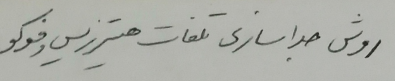 روش جداسازی تلفات هیسترزیس و فوکو